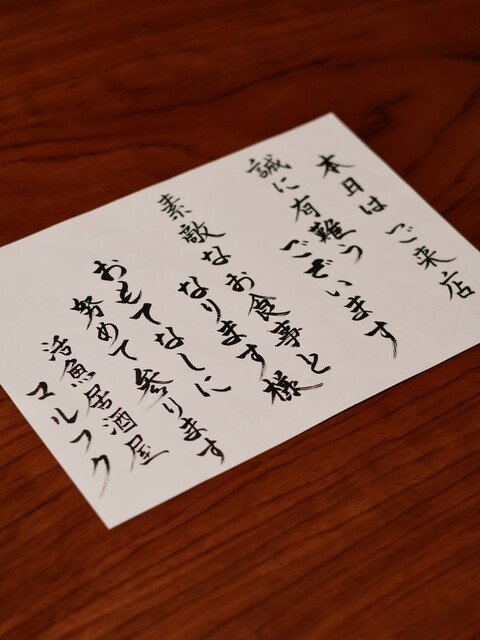 本日はご来店
誠に有難うございます
素敵なお食事と
なります様
おもてなしに
努めて参ります
活魚居酒屋
マルフク